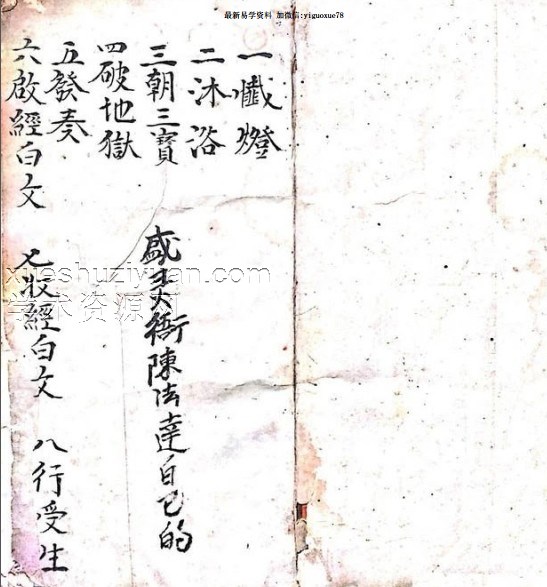 最新易学资料 加微信:yiguoxue78
一懺燈
二沐浴
三朝三寳
四破地獄
五發奏
六啟經白文
七收經白文
八行受生
陳法達自己的
xueshuziyuan.com
学术资源网